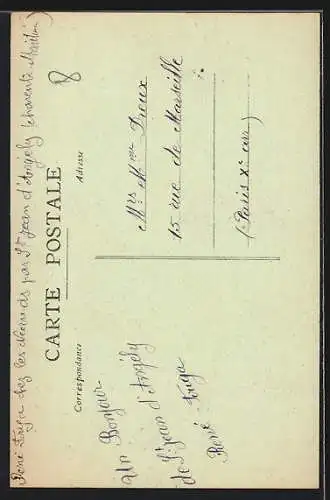 René Fuga chez les
par St Jean d'Angély (charente Maritime)
8
CARTE POSTALE
Correspondance
Adresse
Un Bonjour
de St Jean d'Angély
René Fuga
Mrs Mme Dieux
15 rue de Marseille
(Paris Xe arr)